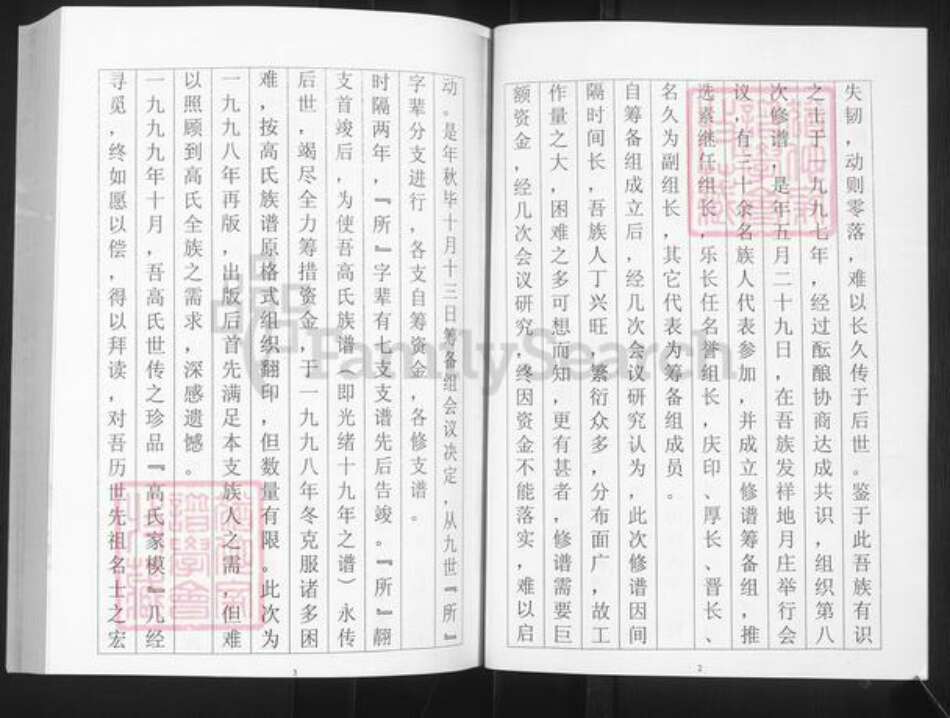 失韧，动则零落，难以长久传于后世。鉴于此吾族有识
之士于一九九七年，经过酝酿协商达成共识，组织第八
次修谱，是年五月二十九日，在吾族发祥地月庄举行会
议，有三十余名族人代表参加，并成立修谱筹备组，推
选素继任组长，乐长任名誉组长，庆印、厚长、晋长、
名久为副组长，其它代表为筹备组成员。
自筹备组成立后，经几次会议研究认为，此次修谱因间
隔时间长，吾族人丁兴旺，繁衍众多，分布面广，故工
作量之大，困难之多可想而知，更有甚者，修谱需要巨
额资金，经几次会议研究，终因资金不能落实，难以启
2
动。是年秋毕十月十三日筹备组会议决定，从九世『所』
字辈分支进行，各支自筹资金，各修支谱。
时隔两年，『所』字辈有七支支谱先后告竣。『所』翮
支首竣后，为使吾高氏族谱（即光绪十九年之谱）永传
后世，竭尽全力筹措资金，于一九九八年冬克服诸多困
难，按高氏族谱原格式组织翻印，但数量有限。此次为
一九九八年再版，出版后首先满足本支族人之需，但难
以照顾到高氏全族之需求，深感遗憾。
一九九九年十月，吾高氏世传之珍品『高氏家模』几经
寻觅，终如愿以偿，得以拜读，对吾历世先祖名士之宏
3
FamilySearch